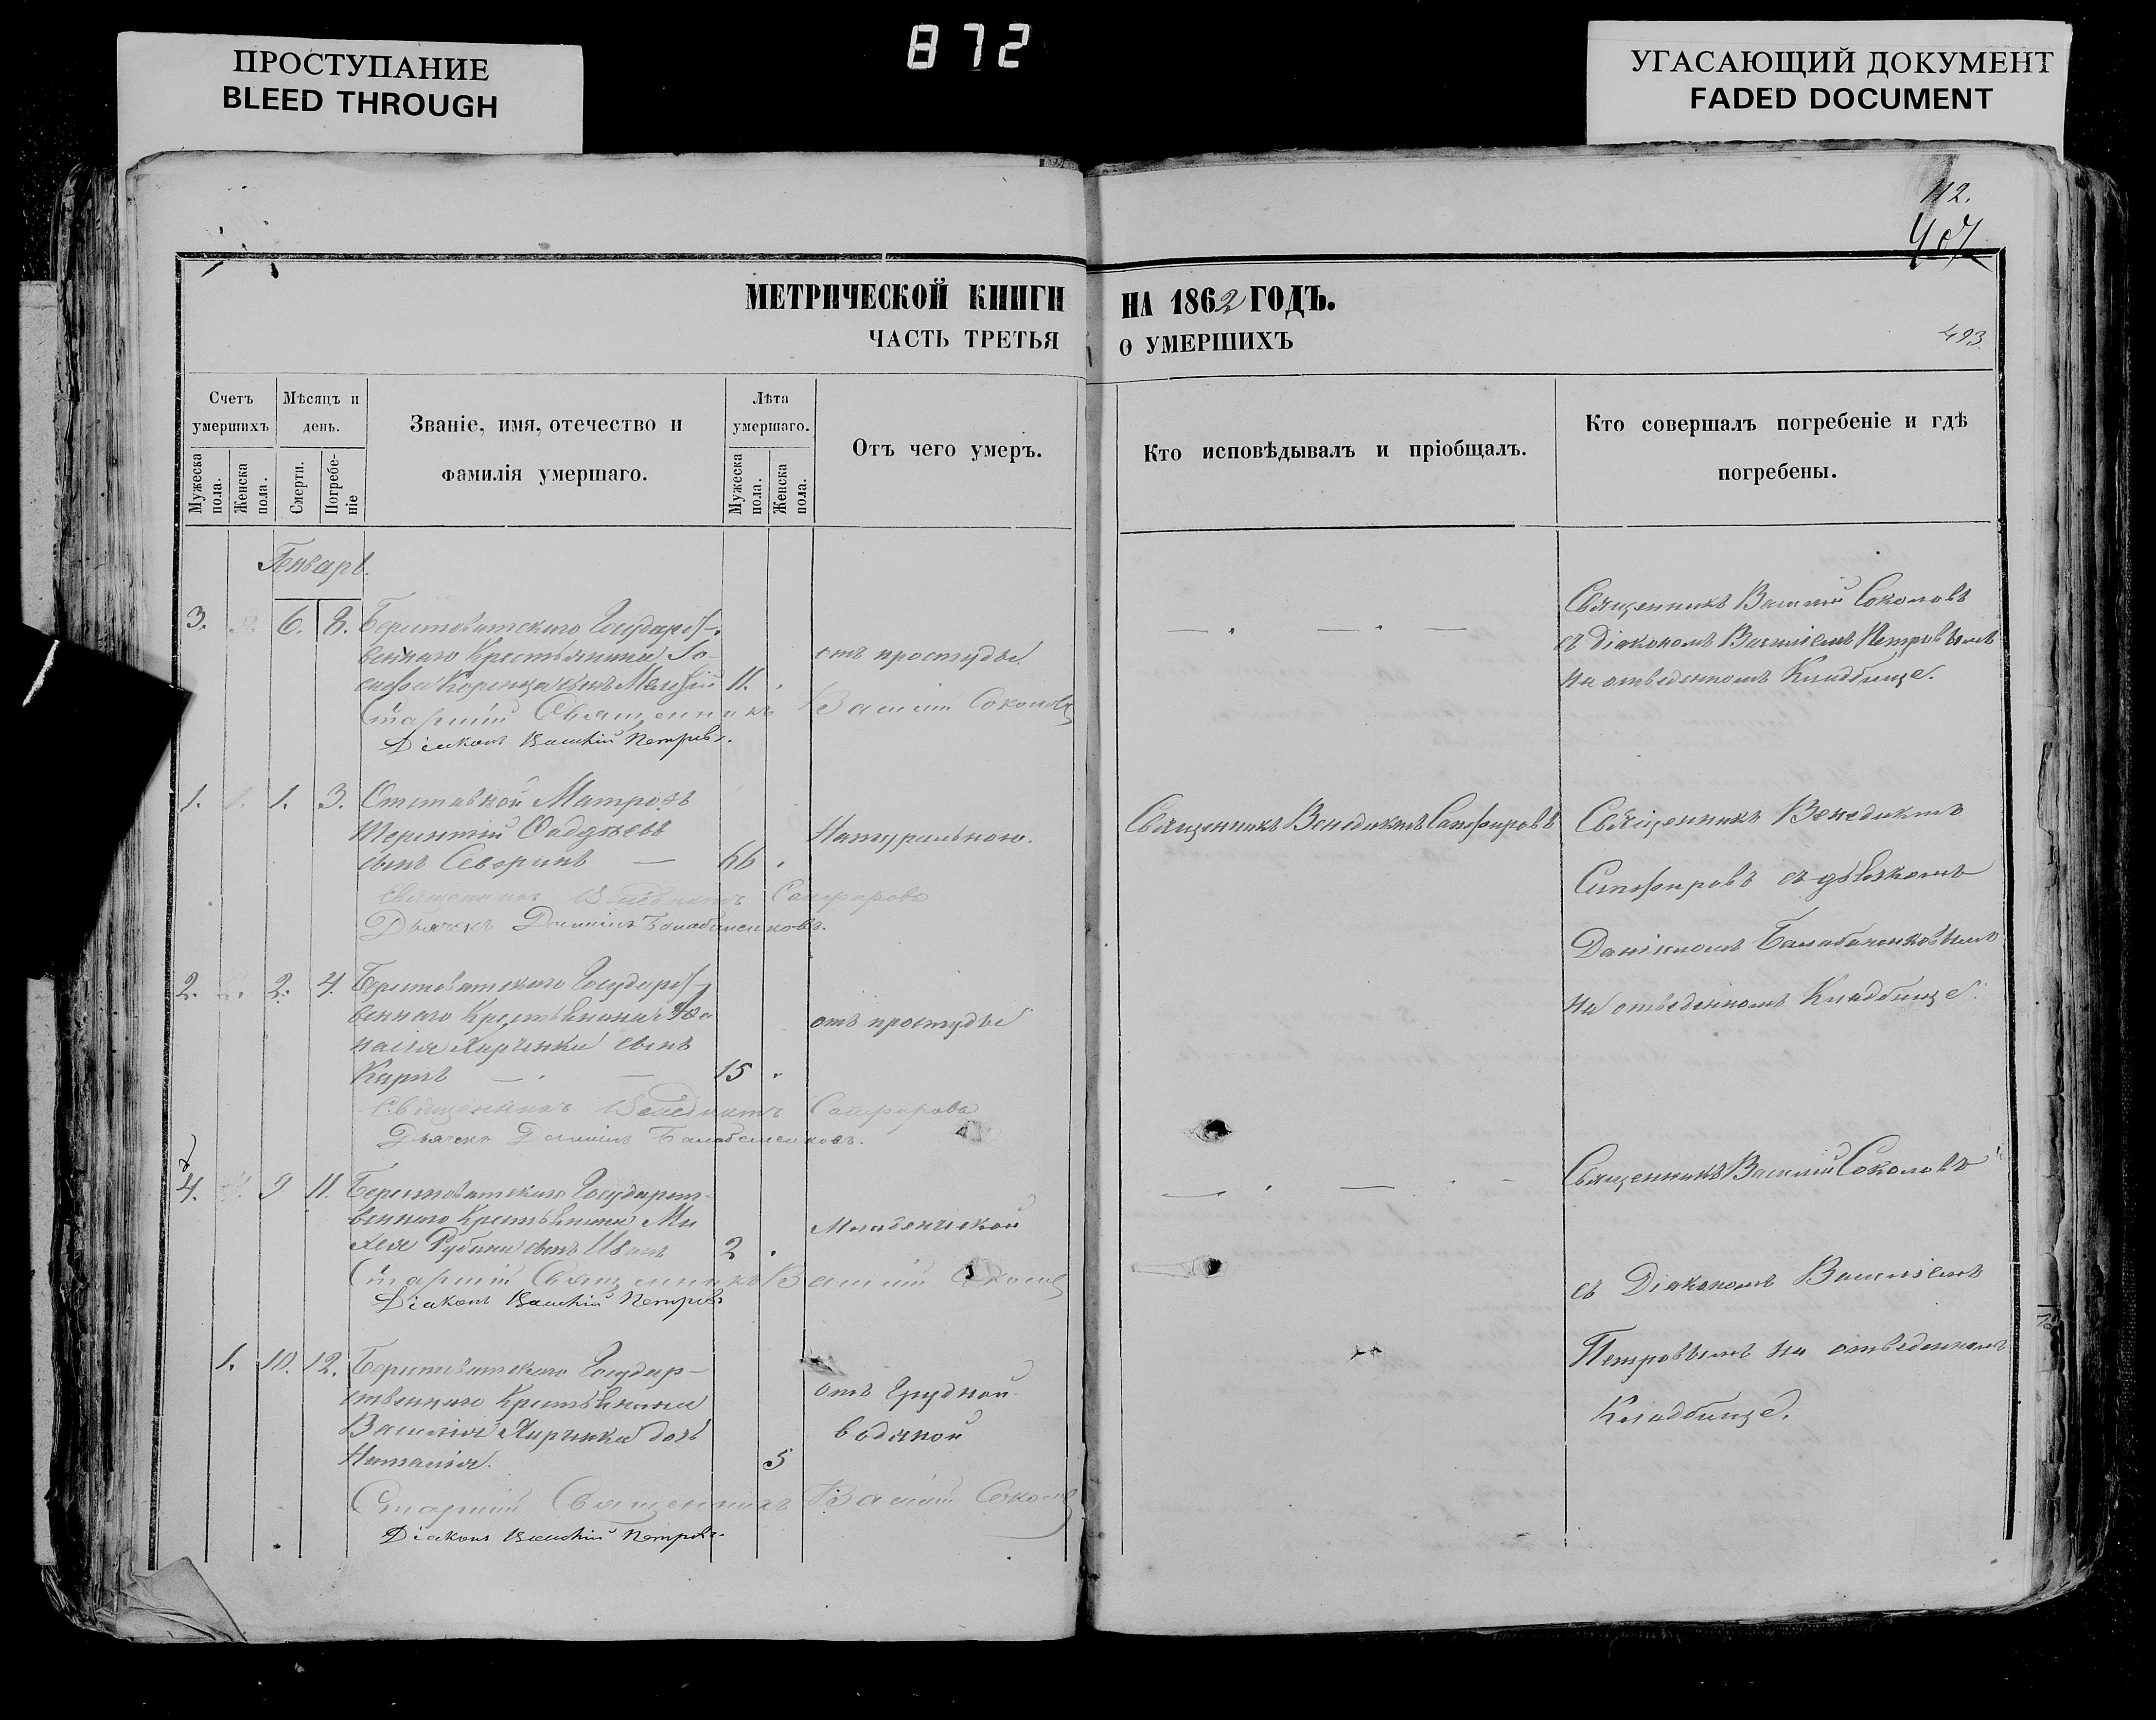 872
ПРОСТУПАНИЕ
BLEED THROUGH
УГАСАЮЩИЙ ДОКУМЕНТ
FADED DOCUMENT
112.
407
МЕТРИЧЕСКОЙ КНИГИ НА 1862 ГОДЪ.
ЧАСТЬ ТРЕТЬЯ О УМЕРШИХЪ
493.
Счетъ умершихъ
Мужеска пола.
Женска пола.
Мѣсяцъ и день.
Смерти.
Погребеніе
Званіе, имя, отечество и
фамилія умершаго.
Лѣта умершаго.
Мужеска пола.
Женска пола.
Отъ чего умеръ.
Кто исповѣдывалъ и пріобщалъ.
Кто совершалъ погребеніе и гдѣ
погребены.
Генварь.
3. 6. 8. Берестоватского Государст-
веннаго Крестьянина Іо-
сифа сынъ 11.
отъ простуды
Старшій Священникъ Василій Соколовъ
Діаконъ Василій Петровъ.
Священникъ Василій Соколовъ
съ Діакономъ Василіемъ Петровымъ
на отведенномъ Кладбище.
1. 1. 3. Отставной Матрозъ
Терентій Фаддѣевъ
сынъ Северинъ — 66
Натуральною.
Священникъ Венедиктъ Сапфировъ
Дьячекъ Даніилъ Балабаненковъ.
Священникъ Венедиктъ Сапфировъ
Священникъ Венедиктъ
Сапфировъ съ дьячкомъ
Даніиломъ Балабаненковымъ
на отведенномъ Кладбище.
2. 2. 4. Берестоватского Государст-
веннаго Крестьянина Афа
насія Кирички сынъ
Карпъ — 15
отъ простуды
Священникъ Венедиктъ Сапфировъ
Дьячекъ Даніилъ Балабаненковъ.
4. 9 11. Берестоватского Государст-
веннаго Крестьянина Ми
хея Рубана сынъ Иванъ 2
Младенческой
Старшій Священникъ Василій Соколовъ
Діаконъ Василій Петровъ
Священникъ Василій Соколовъ
съ Діакономъ Василіемъ
Петровымъ на отведенномъ
Кладбище.
1. 10. 12. Берестоватского Государ-
ственнаго Крестьянина
Василія Кирички дочь
Наталія. 5
отъ Грудной
водяной
Старшій Священникъ Василій Соколовъ
Діаконъ Василій Петровъ.